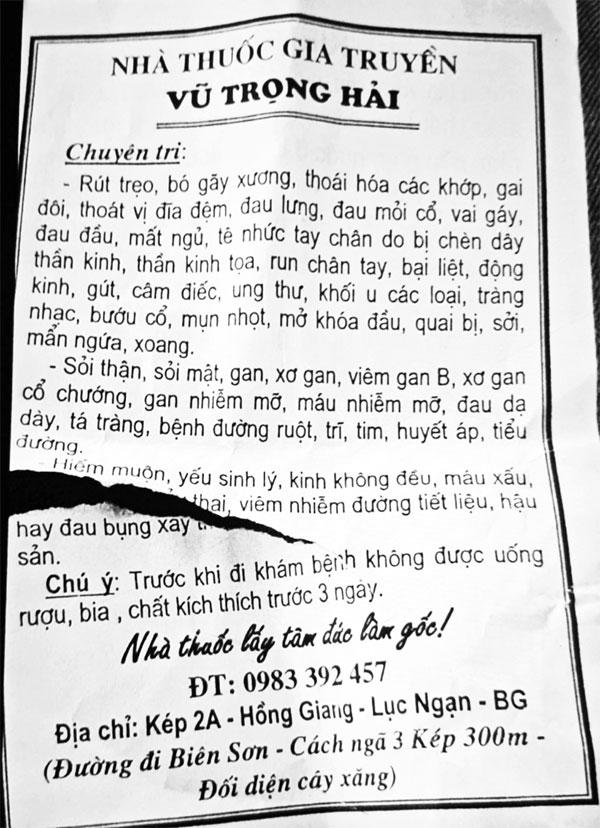 NHÀ THUỐC GIA TRUYỀN
VŨ TRỌNG HẢI
Chuyên trị:
- Rút trẹo, bó gãy xương, thoái hóa các khớp, gai
đôi, thoát vị đĩa đệm, đau lưng, đau mỏi cổ, vai gáy,
đau đầu, mất ngủ, tê nhức tay chân do bị chèn dây
thần kinh, thần kinh tọa, run chân tay, bại liệt, động
kinh, gút, câm điếc, ung thư, khối u các loại, tràng
nhạc, bướu cổ, mụn nhọt, mở khóa đầu, quai bị, sởi,
mẩn ngứa, xoang.
- Sỏi thận, sỏi mật, gan, xơ gan, viêm gan B, xơ gan
cổ chướng, gan nhiễm mỡ, máu nhiễm mỡ, đau dạ
dày, tá tràng, bệnh đường ruột, trĩ, tim, huyết áp, tiểu
đường.
- Hiếm muộn, yếu sinh lý, kinh không đều, máu xấu,
thai, viêm nhiễm đường tiết liệu, hậu
hay đau bụng xảy
sản.
Chú ý: Trước khi đi khám bệnh không được uống
rượu, bia , chất kích thích trước 3 ngày.
Nhà thuốc lấy tâm đức làm gốc!
ĐT: 0983 392 457
Địa chỉ: Kép 2A - Hồng Giang - Lục Ngạn - BG
(Đường đi Biên Sơn - Cách ngã 3 Kép 300m -
Đối diện cây xăng)